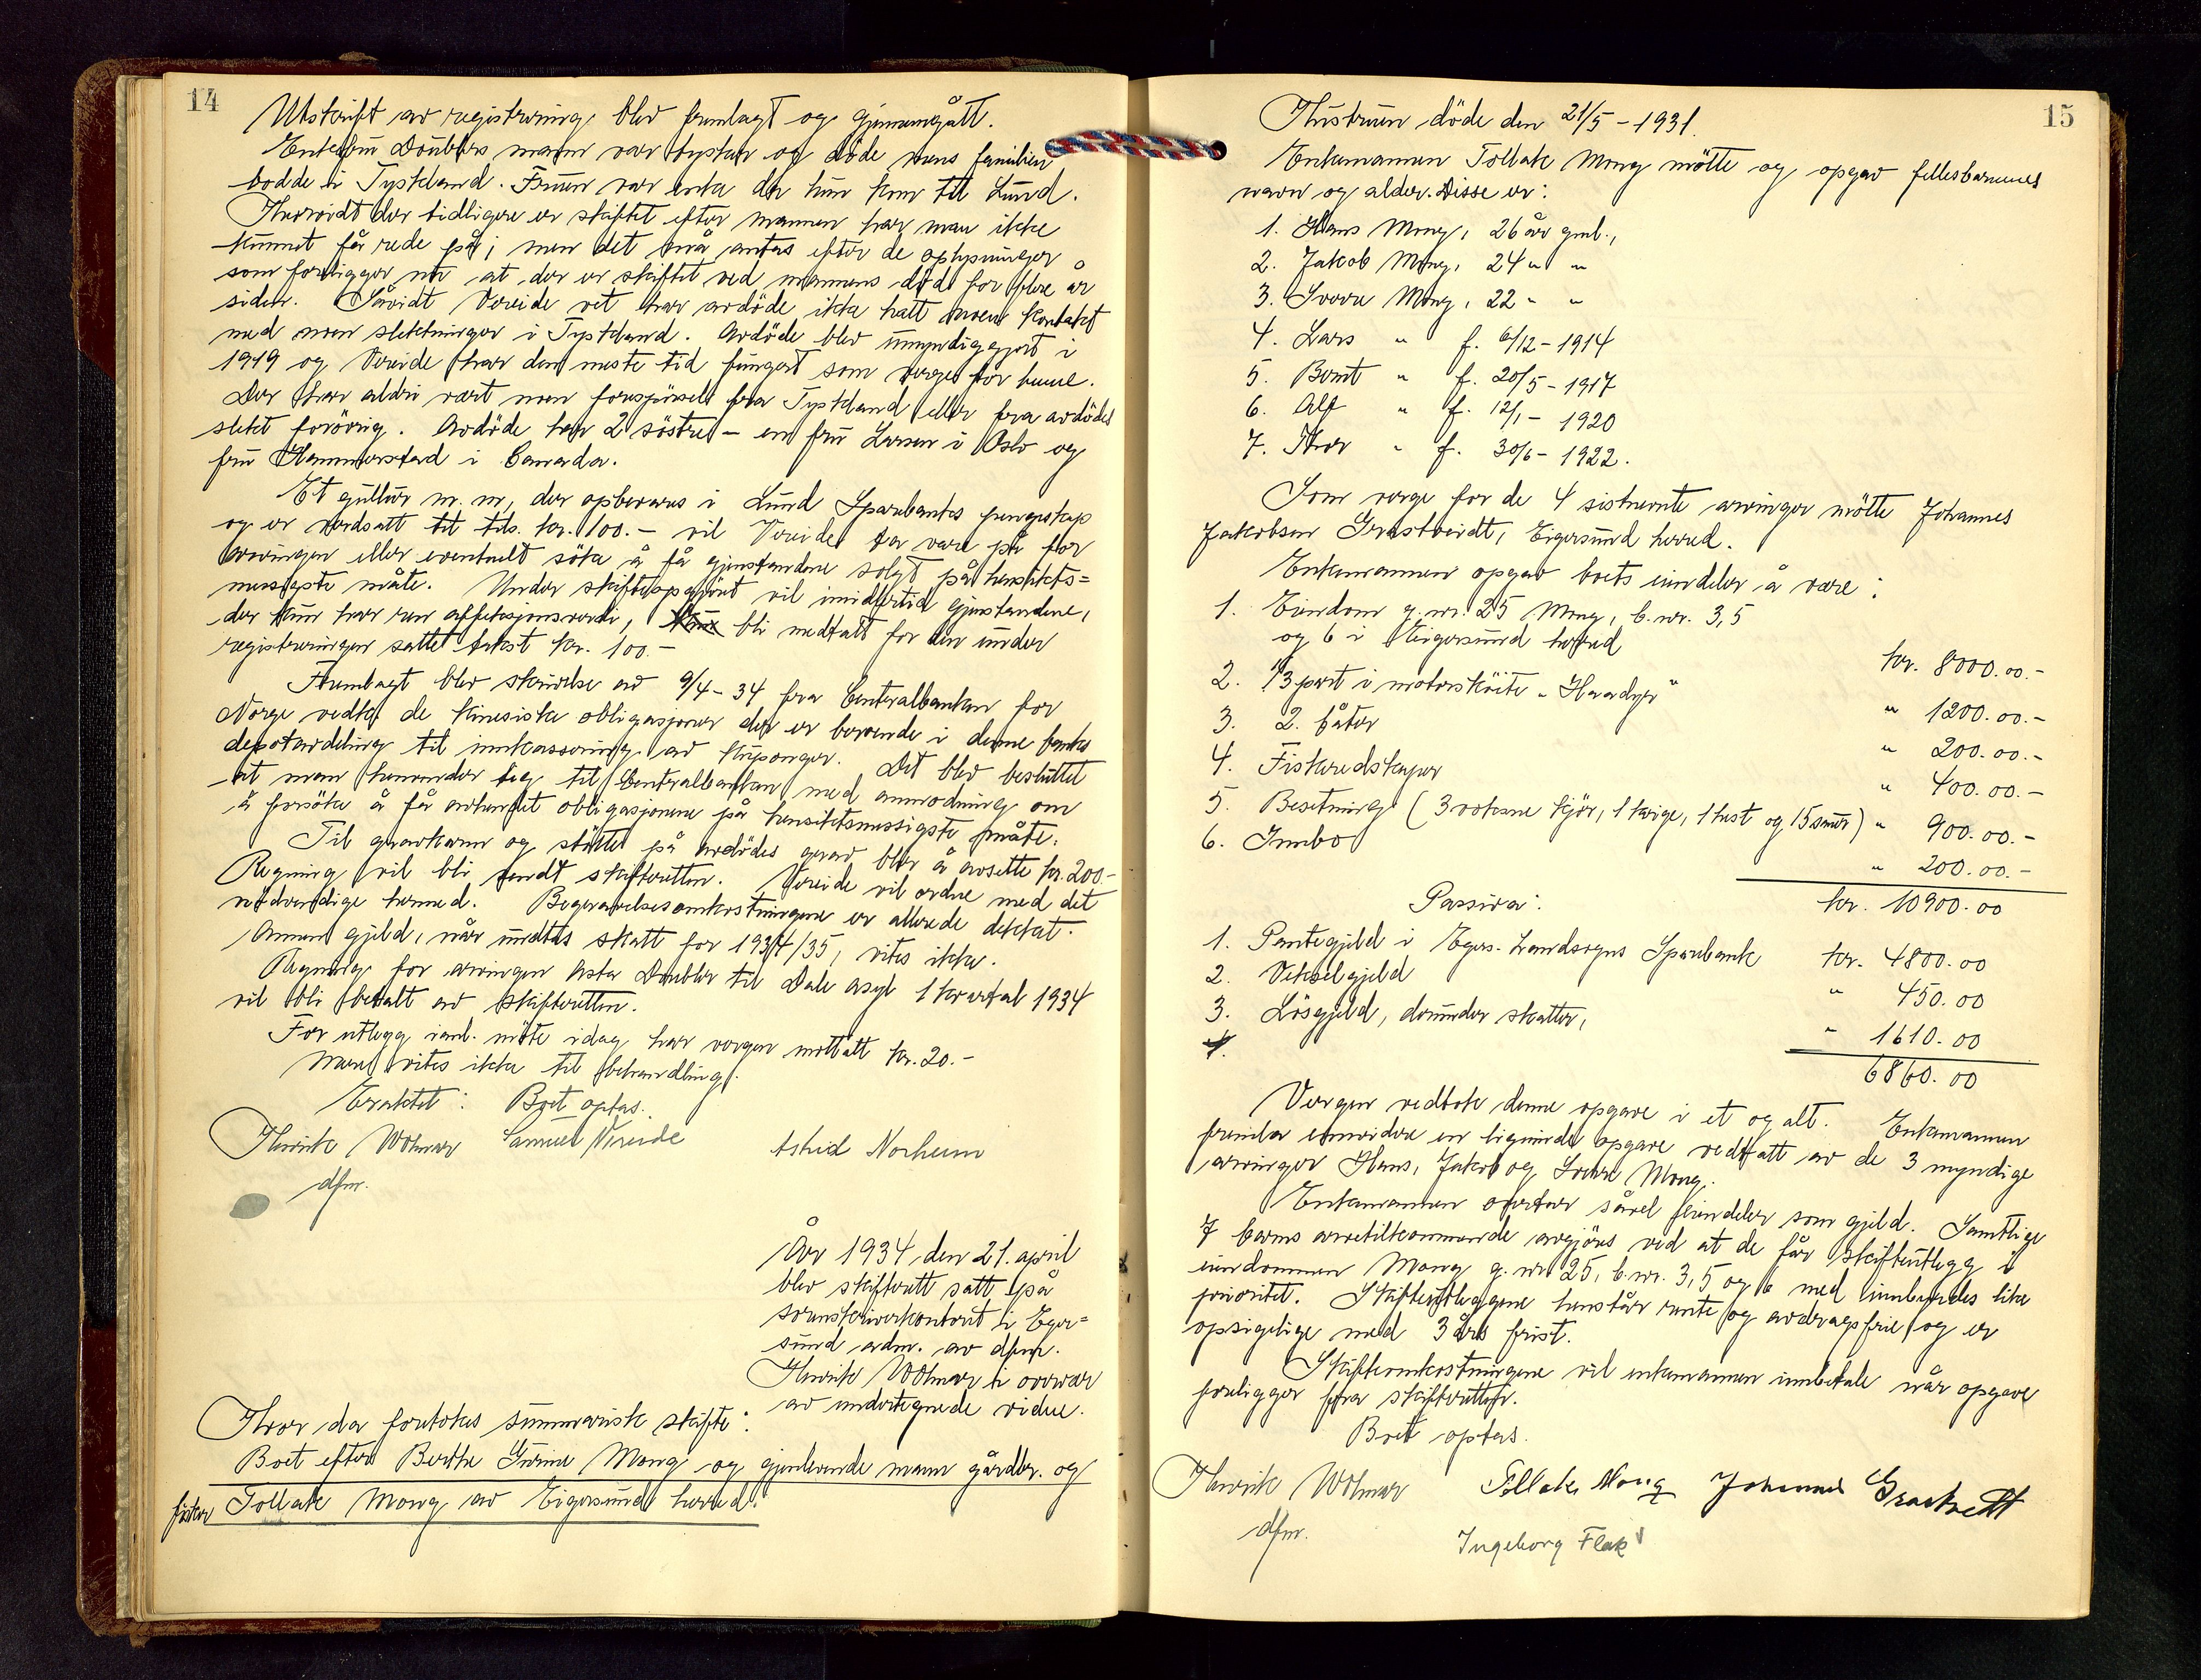 14
Utskrift av registrering blev fremlagt og gjennemgått.
Enkefru Doublers mann var tysker og döde mens familien
bodde i Tyskland. Fruen var enke da hun kom til Lund.
Hvorvidt der tidligere er skiftet efter mannen har man ikke
kunnet få rede på; men det må antas efter de oplysninger
som foreligger nu at der er skiftet ved mannens död for flere år
siden. Såvidt Vereide vet har avdöde ikke hatt noen kontakt
med noen slektninger i Tyskland. Avdöde blev umyndiggjort i
1919 og Vereide har den meste tid fungert som verge for henne.
Der har aldri vært noen forespörsel fra Tyskland eller fra avdödes
slekt forövrig. Avdöde har 2 söstre – en fru Larsen i Oslo og
fru Hammerstad i Canada.
Et gullur m. m, der opbevares i Lund Sparebanks pengeskap
og er verdsatt til tils. kr. 100.- vil Vereide ta vare på for
arvingen eller eventuelt söke å få gjenstandene solgt på hensikts=
messigste måte. Under skifteopgjöret vil imidlertid gjenstandene,
der kun har ren affeksjonsverdi, bli medtatt for den under
registreringen satte takst kr. 100.-
Fremlagt blev skrivelse av 9/4-34 fra Centralbanken for
Norge vedk. de kinesiske obligasjoner der er beroende i denne banks
depotavdeling til innkassering av kuponger. Det blev besluttet
at man henvender seg til Centralbanken med anmodning om
å forsöke å få avhendet obligasjonene på hensiktsmessigste måte.
Til gravkarm og stötte på avdödes grav blir å avsette kr. 200.-
Regning vil bli sendt skifteretten. Vereide vil ordne med det
nödvendige hermed. Begravelsesomkostningene er allerede dekket.
Annen gjeld, når undtas skatt for 1934/35, vites ikke.
Regning for arvingen Asta Doubler til Dale asyl 1 kvartal 1934
vil bli betalt av skifteretten.
For utlegg i anl. möte idag har vergen mottatt kr. 20.-
Mere vites ikke til behandling.
Eraktet: Boet optas.
Henrik Wolmar Samuel Vereide Astrid Norheim
dfm.
År 1934 den 21. april
blev skifterett satt på
sorenskriverkontoret i Eger=
sund adm. av dfm.
Henrik Wolmar i overvær
av undertegnede vidne.
Hvor da foretokes summarisk skifte:
Boet efter Berthe Gurine Mong og gjenlevende mann gårdbr. og
fisker Tollak Mong av Eigersund herred.
15
Hustruen döde den 21/5-1931.
Enkemannen Tollak Mong mötte og opgav fellesbarnenes
navn og alder. Disse er:
1. Hans Mong, 26 år gml.,
2. Jakob Mong, 24 " "
3. Sverre Mong, 22 " "
4. Lars " f. 6/12-1914
5. Bernt " f. 20/5-1917
6. Alf " f. 12/1-1920
7. Thor " f. 30/6-1922.
Som verge for de 4 sistnevnte arvinger mötte Johannes
Jakobsen Grastveidt, Eigersund herred.
Enkemannen opgav boets eiendeler å være:
1. Eiendom g. nr. 25 Mong, b. nr. 3,5
og 6 i Eigersund herred kr. 8000.00.-
2. 1/3 part i motorsköite "Havdyr" " 1200.00.-
3. 2. båter " 200.00.-
4. Fiskeredskaper " 400.00.-
5. Besetning (3 voksne kjör, 1 kvige, 1 hest og 15 smær) " 900.00.-
6. Innbo " 200.00.-
kr. 10900.00
Passiva:
1. Pantegjeld i Egers. Landsogns Sparebank kr. 4800.00
2. Vekselgjeld " 450.00
3. Lösgjeld, derunder skatter, " 1610.00
4.
6860.00
Vergen vedtok denne opgave i et og alt. Enkemannen
fremla ennvidere en lignende opgave vedtatt av de 3 myndige
arvinger Hans, Jakob og Sverre Mong.
Enkemannen overtar såvel eiendeler som gjeld. Samtlige
7 barns arvetilkommende avgjöres ved at de får skifteutlegg i
eiendommen Mong g. nr 25, b. nr. 3,5 og 6 med innbyrdes like
prioritet. Skifteutleggene henstår rente og avdragsfrie og er
opsigelige med 3 års frist.
Skifteomkostningene vil enkemannen innbetale når opgave
foreligger fra skifteretten.
Boet optas.
Henrik Wolmar Tollak Mong Johannes Grastveitt
dfm.
Ingeborg Flak